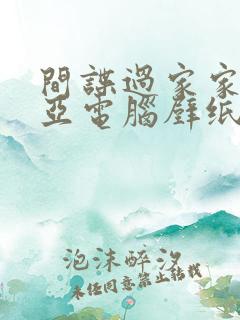 間諜過家家
亞電腦壁纸
泡沫醉汐
未经同意禁止转载